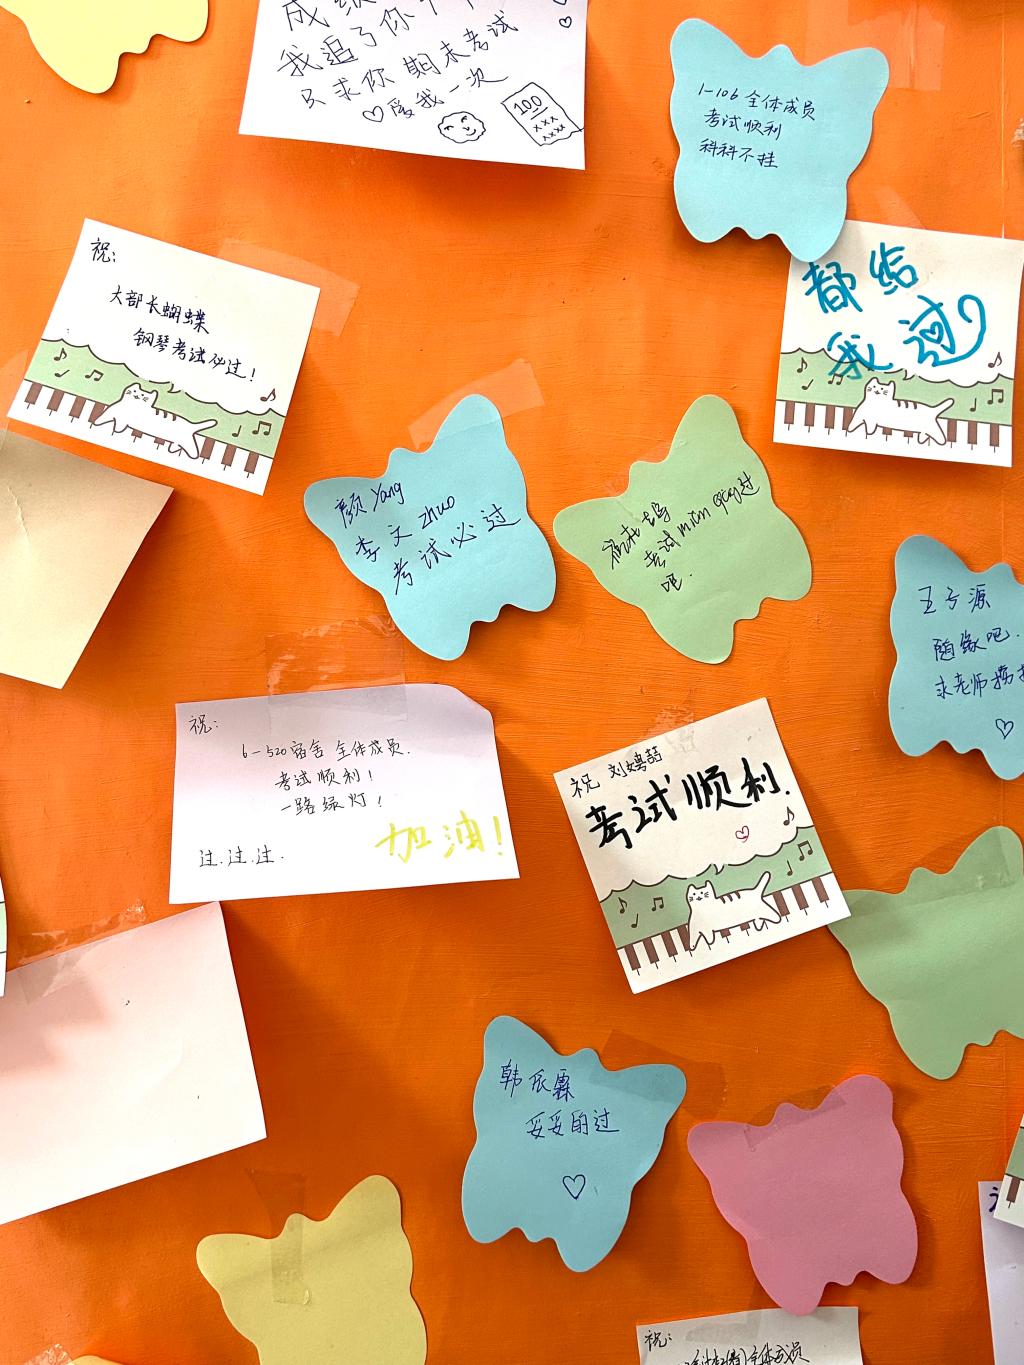 我追了你
只求你期末考试
♡爱我一次
100
xxx
xxxx
1-106 全体成员
考试顺利
科科不挂
祝:
大部长蝴蝶
钢琴考试必过!
都给
我过
颜Yang
李文zhuo
考试必过
考试
过
吧.
随缘吧.
求老师捞
♡
祝:
6-520宿舍 全体成员.
考试顺利!
一路绿灯!
过.过.过.
加油!
祝 刘娉喆
考试顺利.
韩辰霖
妥妥的过
♡
祝:
全体成员